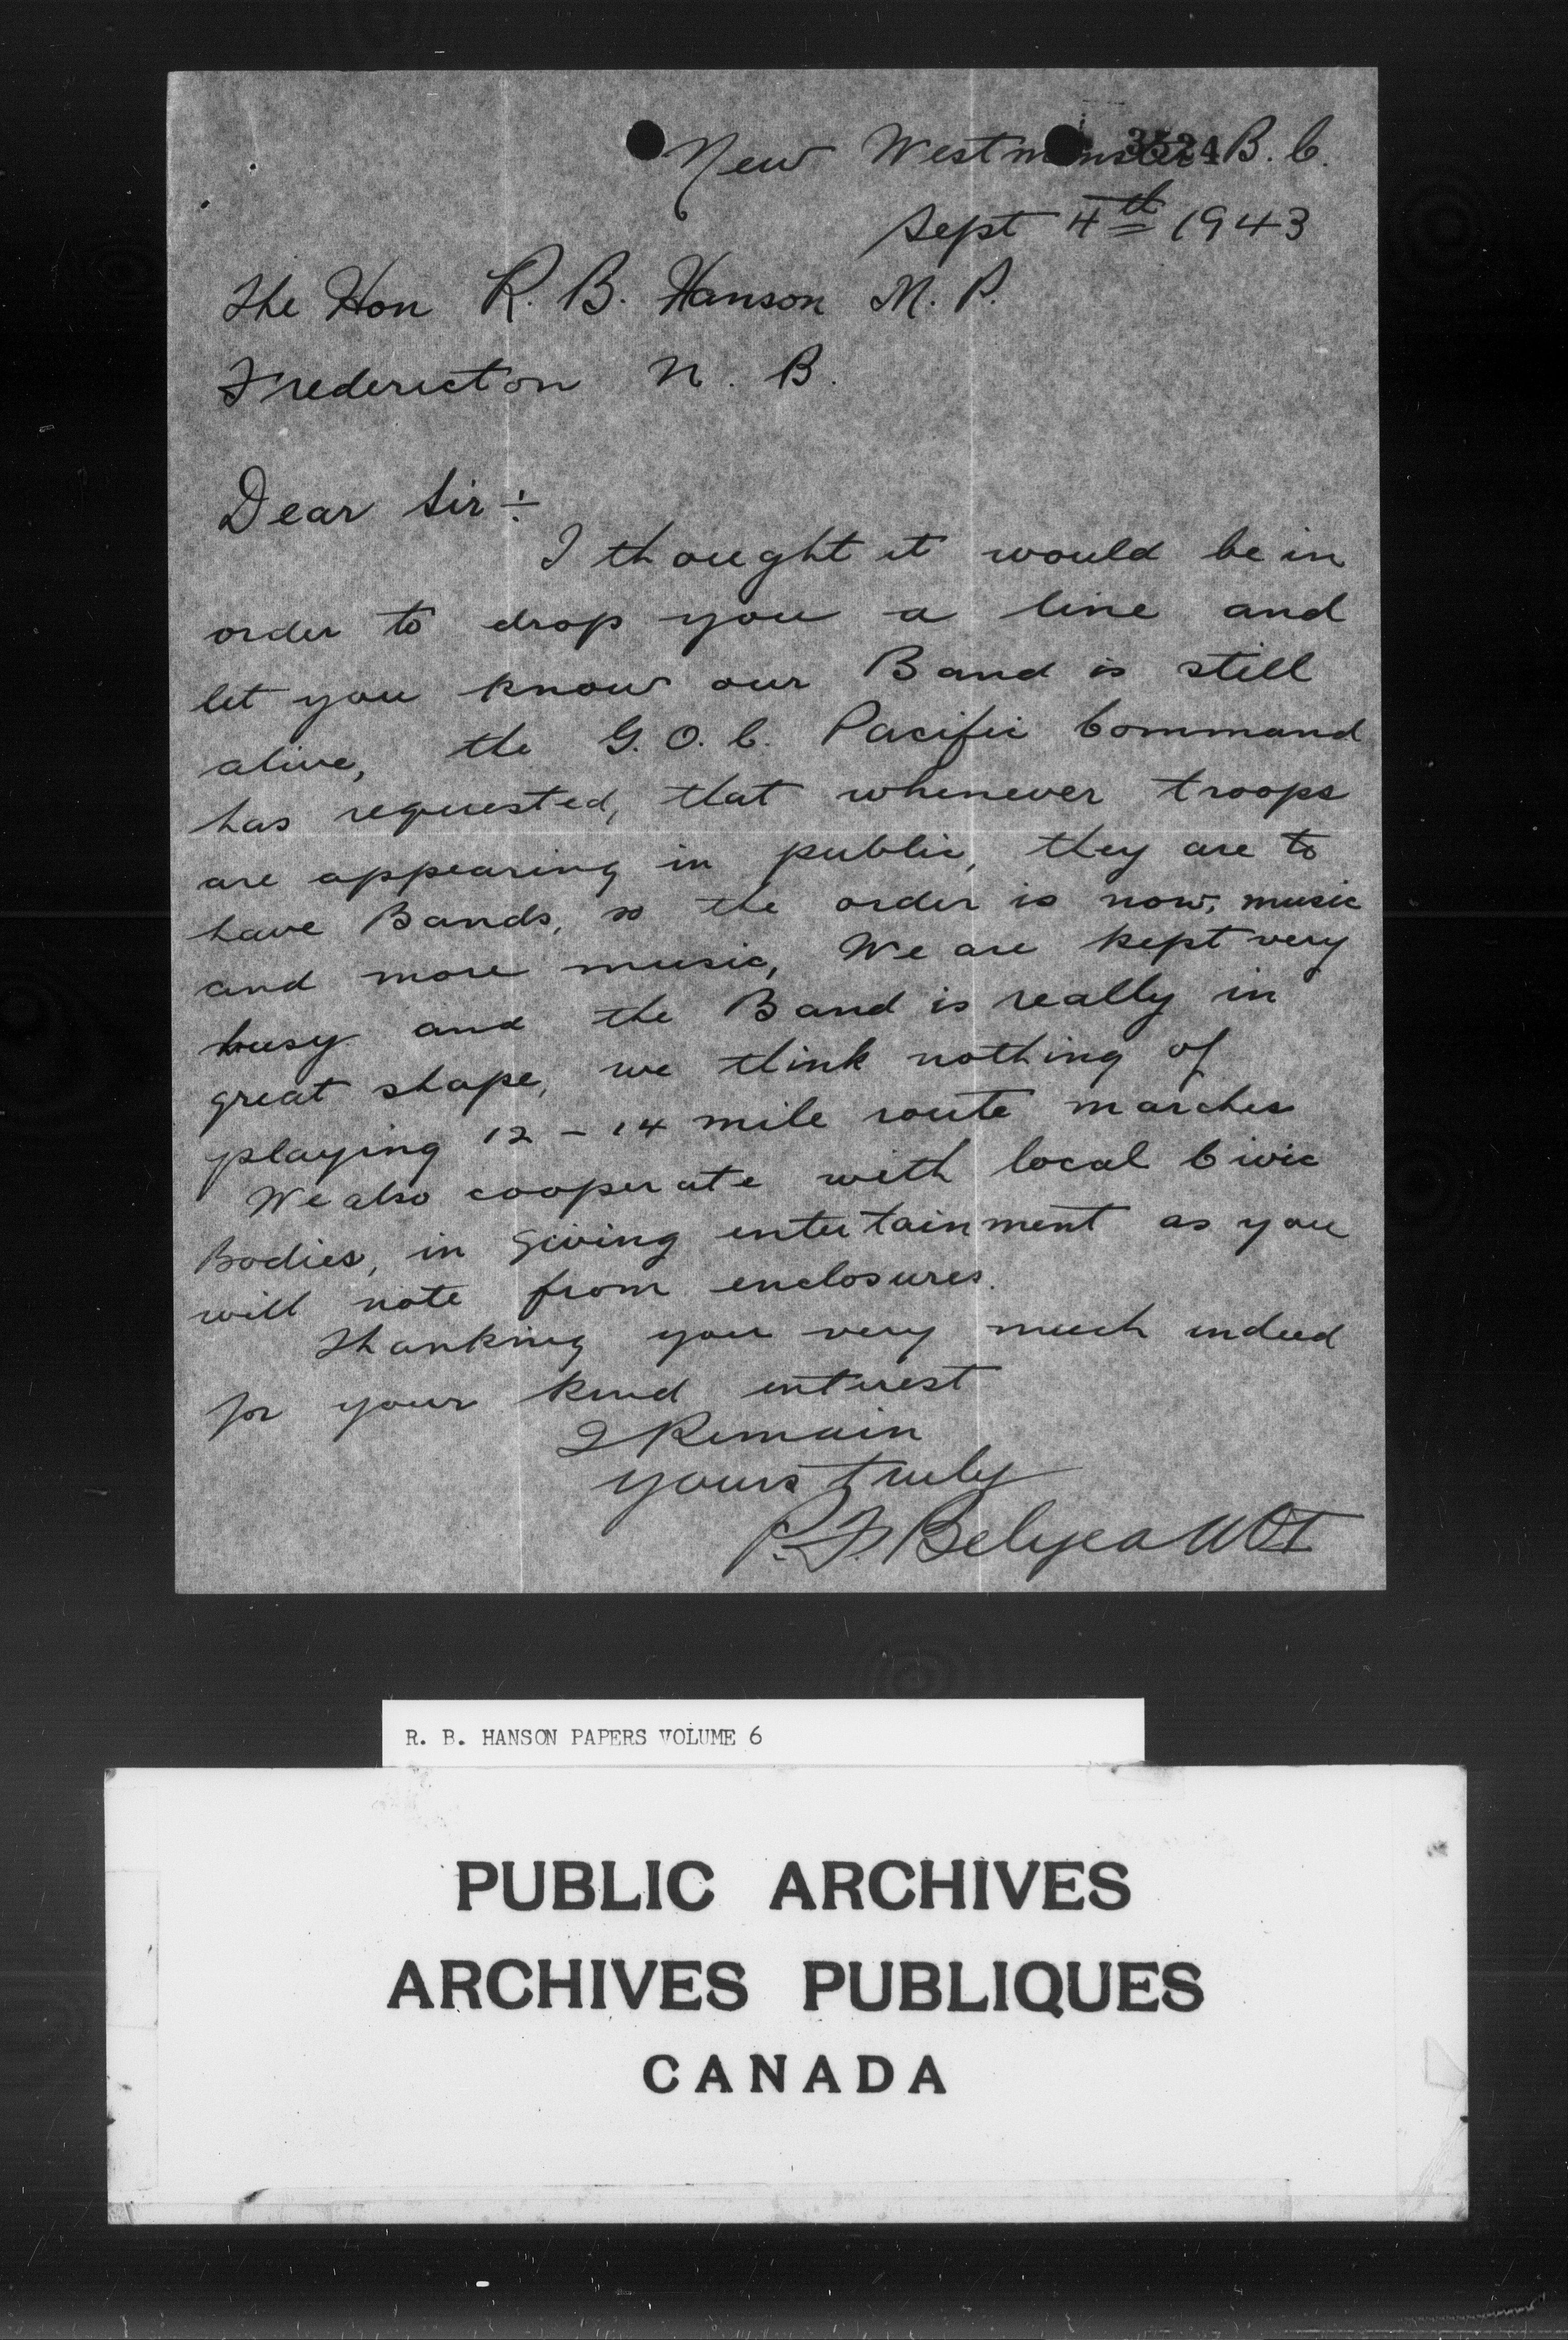 New Westminster B.C.
3524
Sept 4th 1943
The Hon R. B. Hanson M. P.
Fredericton N. B.
Dear Sir:-
I thought it would be in
order to drop you a line and
let you know our Band is still
alive, the G.O.C. Pacific Command
has requested, that whenever troops
are appearing in public, they are to
have Bands, so the order is now, music
and more music, We are kept very
busy and the Band is really in
great shape, we think nothing of
playing 12 - 14 mile route marches
We also cooperate with local Civic
Bodies, in giving entertainment as you
will note from enclosures.
Thanking you very much indeed
for your kind interest
I Remain
yours truly
P.F. Belyea WOI
R. B. HANSON PAPERS VOLUME 6
PUBLIC ARCHIVES
ARCHIVES PUBLIQUES
CANADA